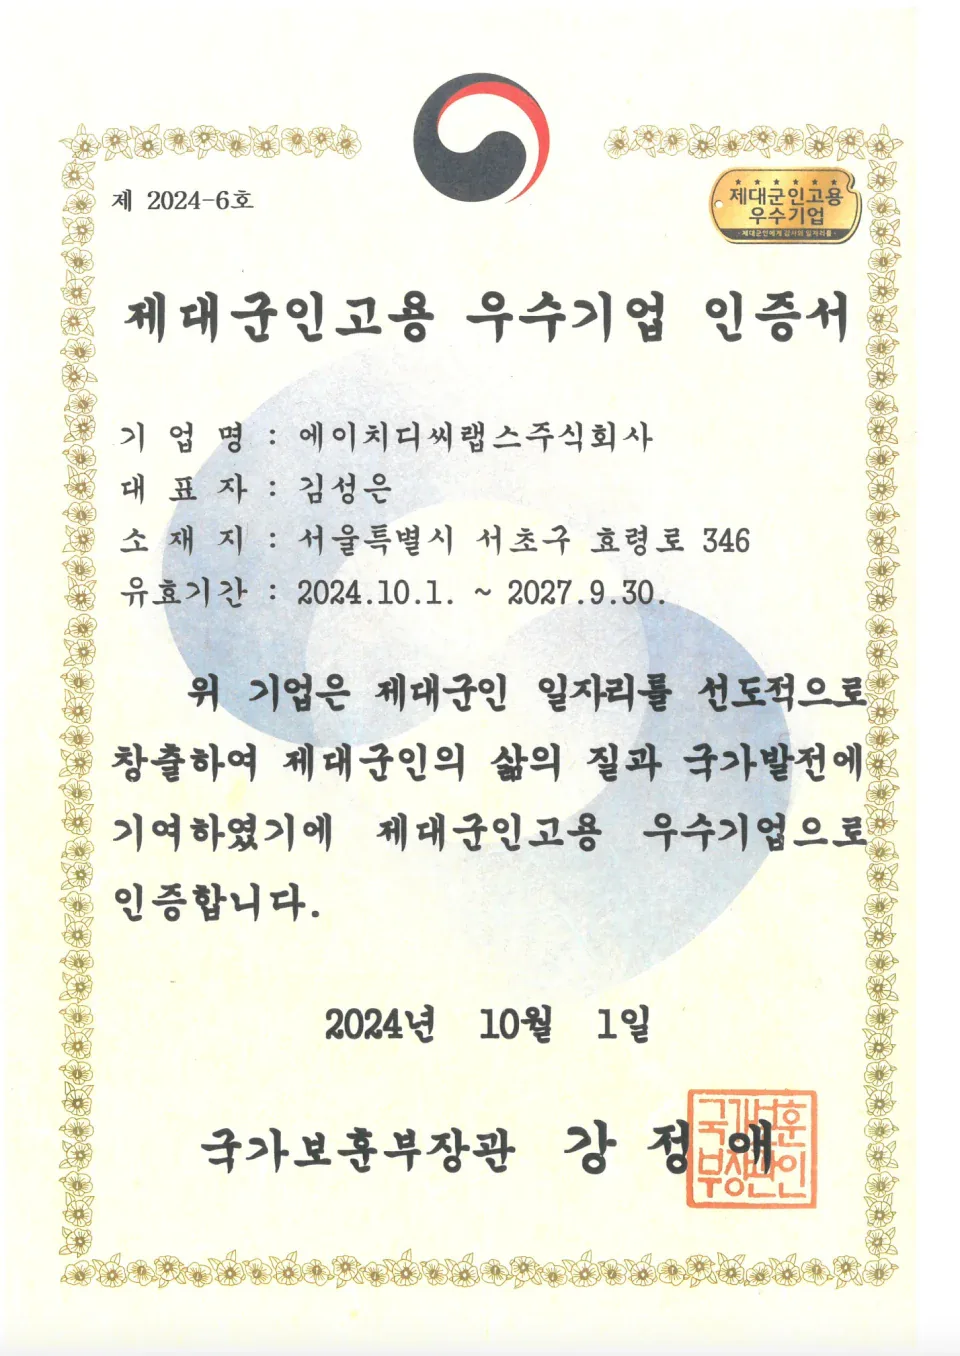 제 2024-6호
제대군인고용
우수기업
제대군인고용 우수기업 인증서
기 업 명 : 에이치디씨랩스주식회사
대 표 자 : 김성은
소 재 지 : 서울특별시 서초구 효령로 346
유효기간 : 2024.10.1. ~ 2027.9.30.
위 기업은 제대군인 일자리를 선도적으로
창출하여 제대군인의 삶의 질과 국가발전에
기여하였기에 제대군인고용 우수기업으로
인증합니다.
2024년 10월 1일
국가보훈부장관 강정애
국가보훈
부장관인